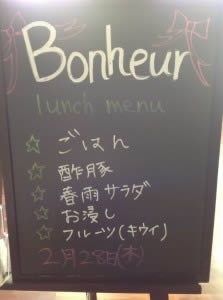 Bonheur
lunch menu
☆ ごはん
☆ 酢豚
☆ 春雨サラダ
☆ お浸し
☆ フルーツ(キウイ)
2月28日(木)